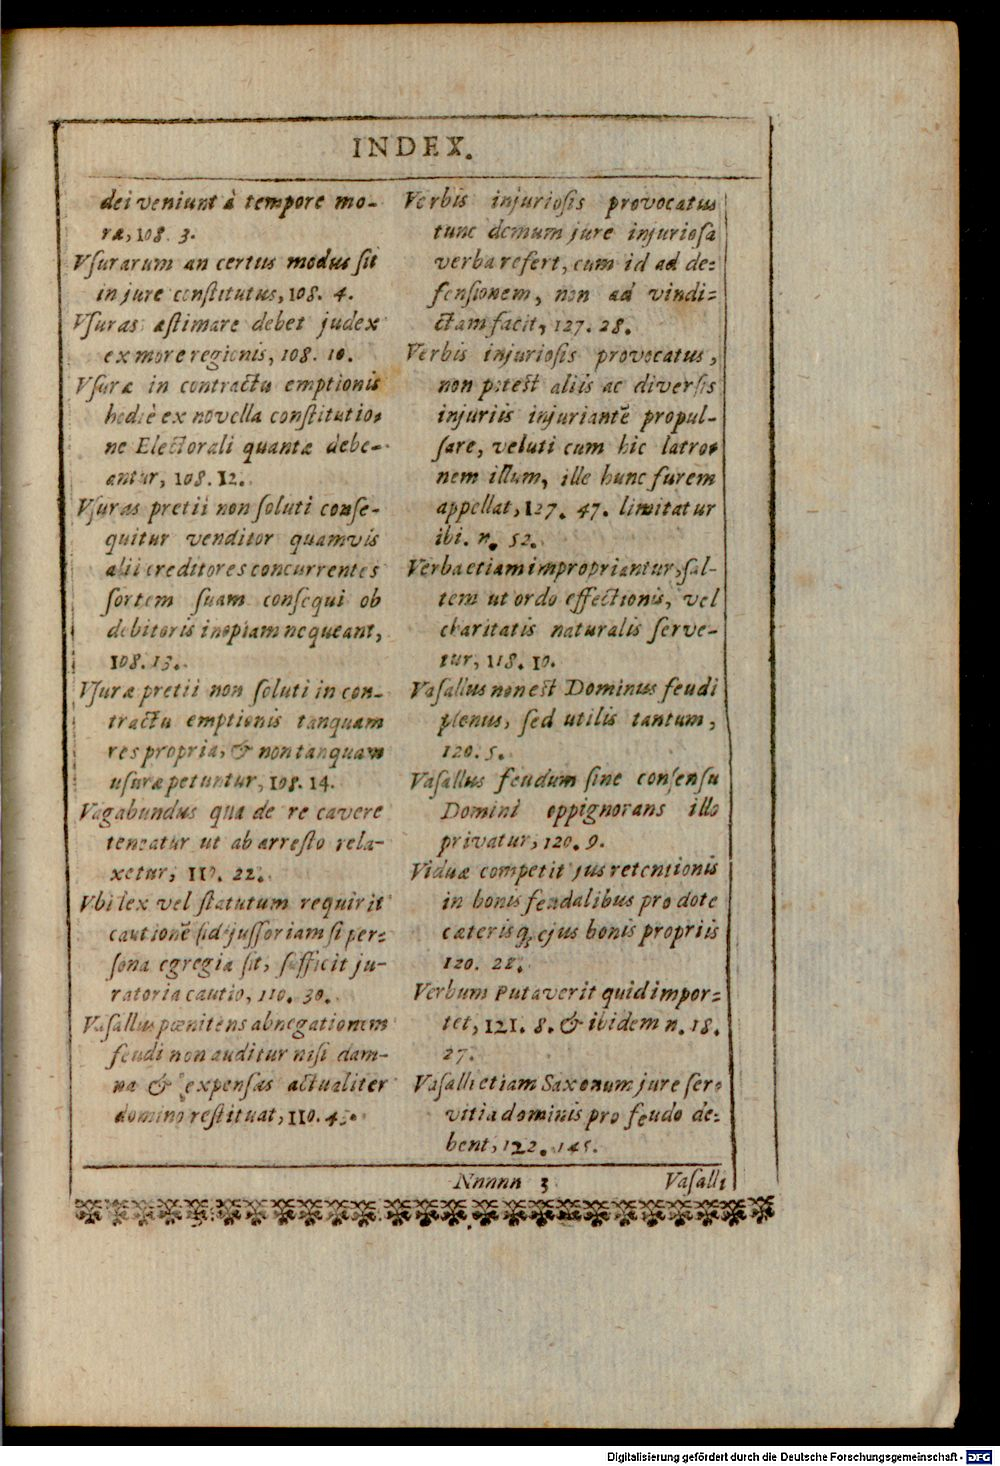 INDEX.
dei veniunt à tempore mo-
ræ, 108. 3.
Vſurarum an certus modus ſit
in jure conſtitutus, 108. 4.
Vſuras æſtimare debet judex
ex more regionis, 108. 10.
Vſuræ in contractu emptionis
hodiè ex novella conſtitutio-
ne Electorali quantæ debe-
antur, 108. 12.
Vſuras pretii non ſoluti conſe-
quitur venditor quamvis
alii creditores concurrentes
ſortem ſuam conſequi ob
debitoris inopiam nequeant,
108. 13.
Vſuræ pretii non ſoluti in con-
tractu emptionis tanquam
res propria, & non tanquam
uſuræ petuntur, 108. 14.
Vagabundus qua de re cavere
teneatur ut ab arreſto rela-
xetur, 110. 22.
Vbi lex vel ſtatutum requirit
cautionē fidejuſſoriam ſi per-
ſona egregia ſit, ſufficit ju-
ratoria cautio, 110. 30.
Vaſallus pœnitens abnegationem
feudi non auditur niſi dam-
na & expenſas actualiter
domino reſtituat, 110. 45.
Verbis injurioſis provocatus
tunc demum jure injurioſa
verba refert, cum id ad de-
fenſionem, non ad vindi-
ctam facit, 127. 28.
Verbis injurioſis provocatus,
non poteſt aliis ac diverſis
injuriis injuriantē propul-
ſare, veluti cum hic latro-
nem illum, ille hunc furem
appellat, 127. 47. limitatur
ibi. n. 52.
Verba etiam impropriantur, ſal-
tem ut ordo effectionis, vel
charitatis naturalis ſerve-
tur, 118. 10.
Vaſallus non eſt Dominus feudi
plenus, ſed utilis tantum,
120. 5.
Vaſallus feudum ſine conſenſu
Domini oppignorans illo
privatur, 120. 9.
Viduæ competit jus retentionis
in bonis feudalibus pro dote
cæterisq; ejus bonis propriis
120. 22.
Verbum Putaverit quid impor-
tet, 121. 8. & ibidem n. 18.
27.
Vaſalli etiam Saxonum jure ſer-
vitia dominis pro feudo de-
bent, 122. 145.
Nnnnn 3
Vaſalli
Digitalisierung gefördert durch die Deutsche Forschungsgemeinschaft - DFG